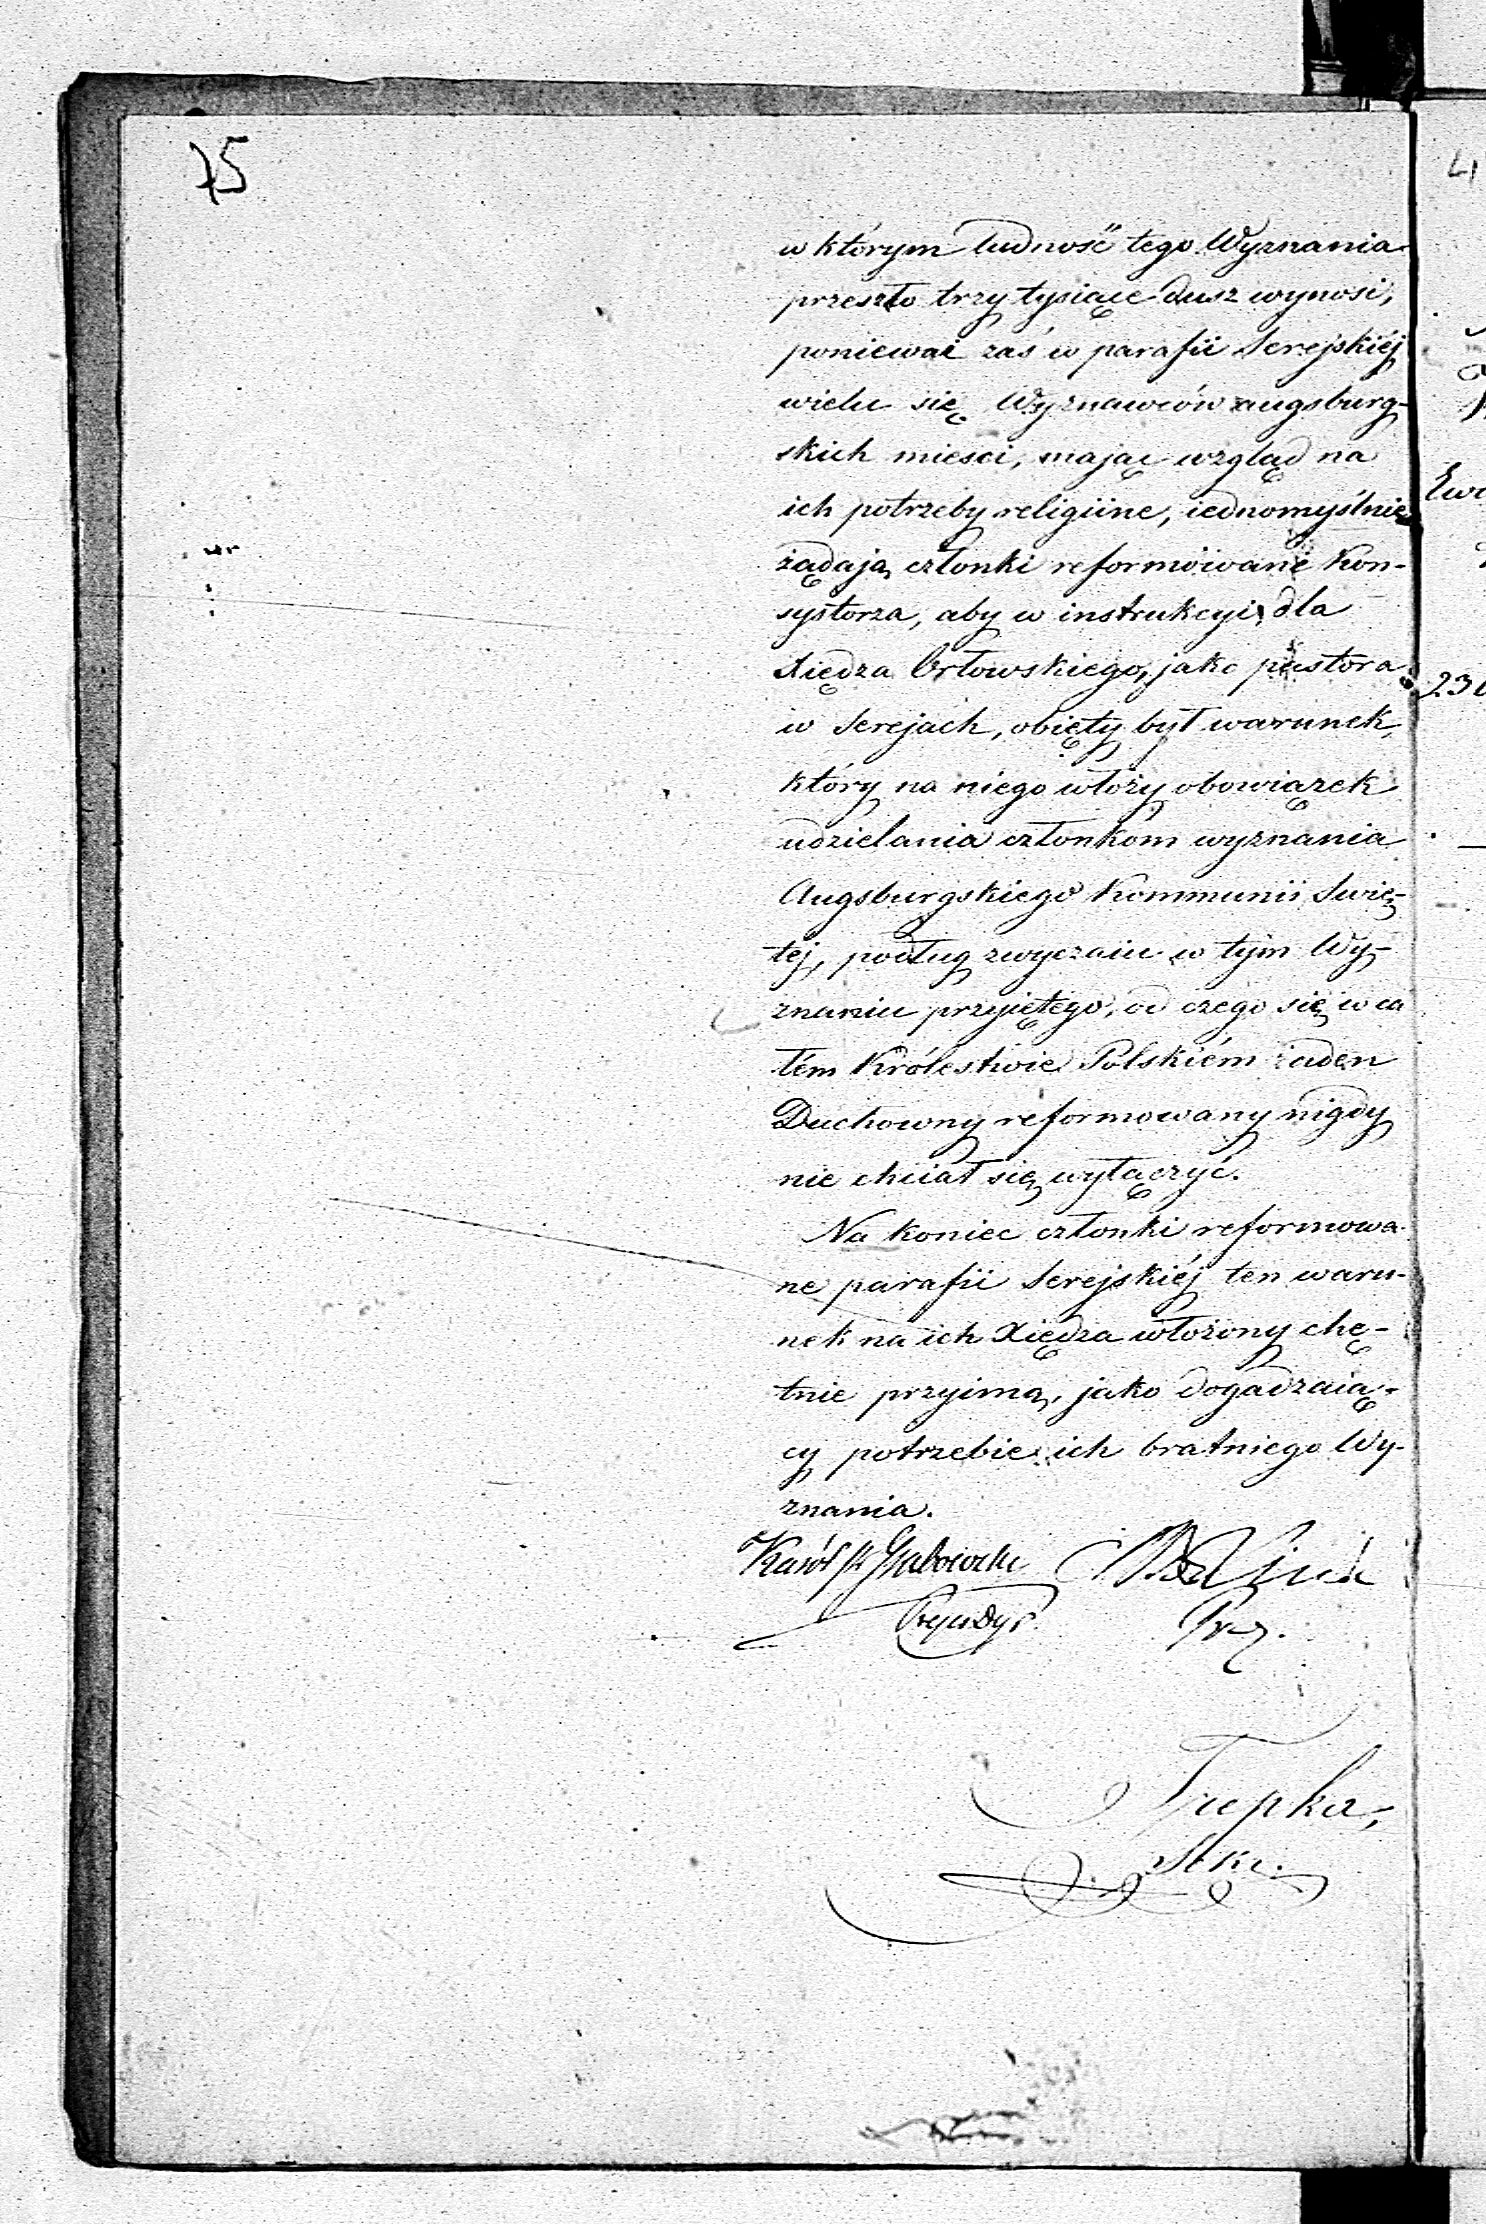 75
w którym ludność tego Wyznania
przeszło trzy tysiące dusz wynosi,
ponieważ zaś w parafii Serejskiéj
wielu się Wyznawców augsburg-
skich mieści, mając wzgląd na
ich potrzeby religiine, iednomyślnie
żądają członki reformowane Kon-
systorza, aby w instrukcyi dla
Xiędza Orłowskiego, jako pastora
w Serejach, obięty był warunek,
który na niego włoży obowiązek
udzielania członkom wyznania
Augsburgskiego Kommunii Swię-
téj, podług zwyczaiu w tym Wy-
znaniu przyiętego, od czego się w ca
łém Królestwie Polskiém żaden
Duchowny reformowany nigdy
nie chciał się wyłączyć.
Na koniec członki reformowa-
ne parafii Serejskiéj ten waru-
nek na ich Xiędza włożony chę-
tnie przyimą, jako dogadzaią-
cy potrzebie ich bratniego Wy-
znania.
Karól Grabowski
Prez.
Trepka,
Sekr.